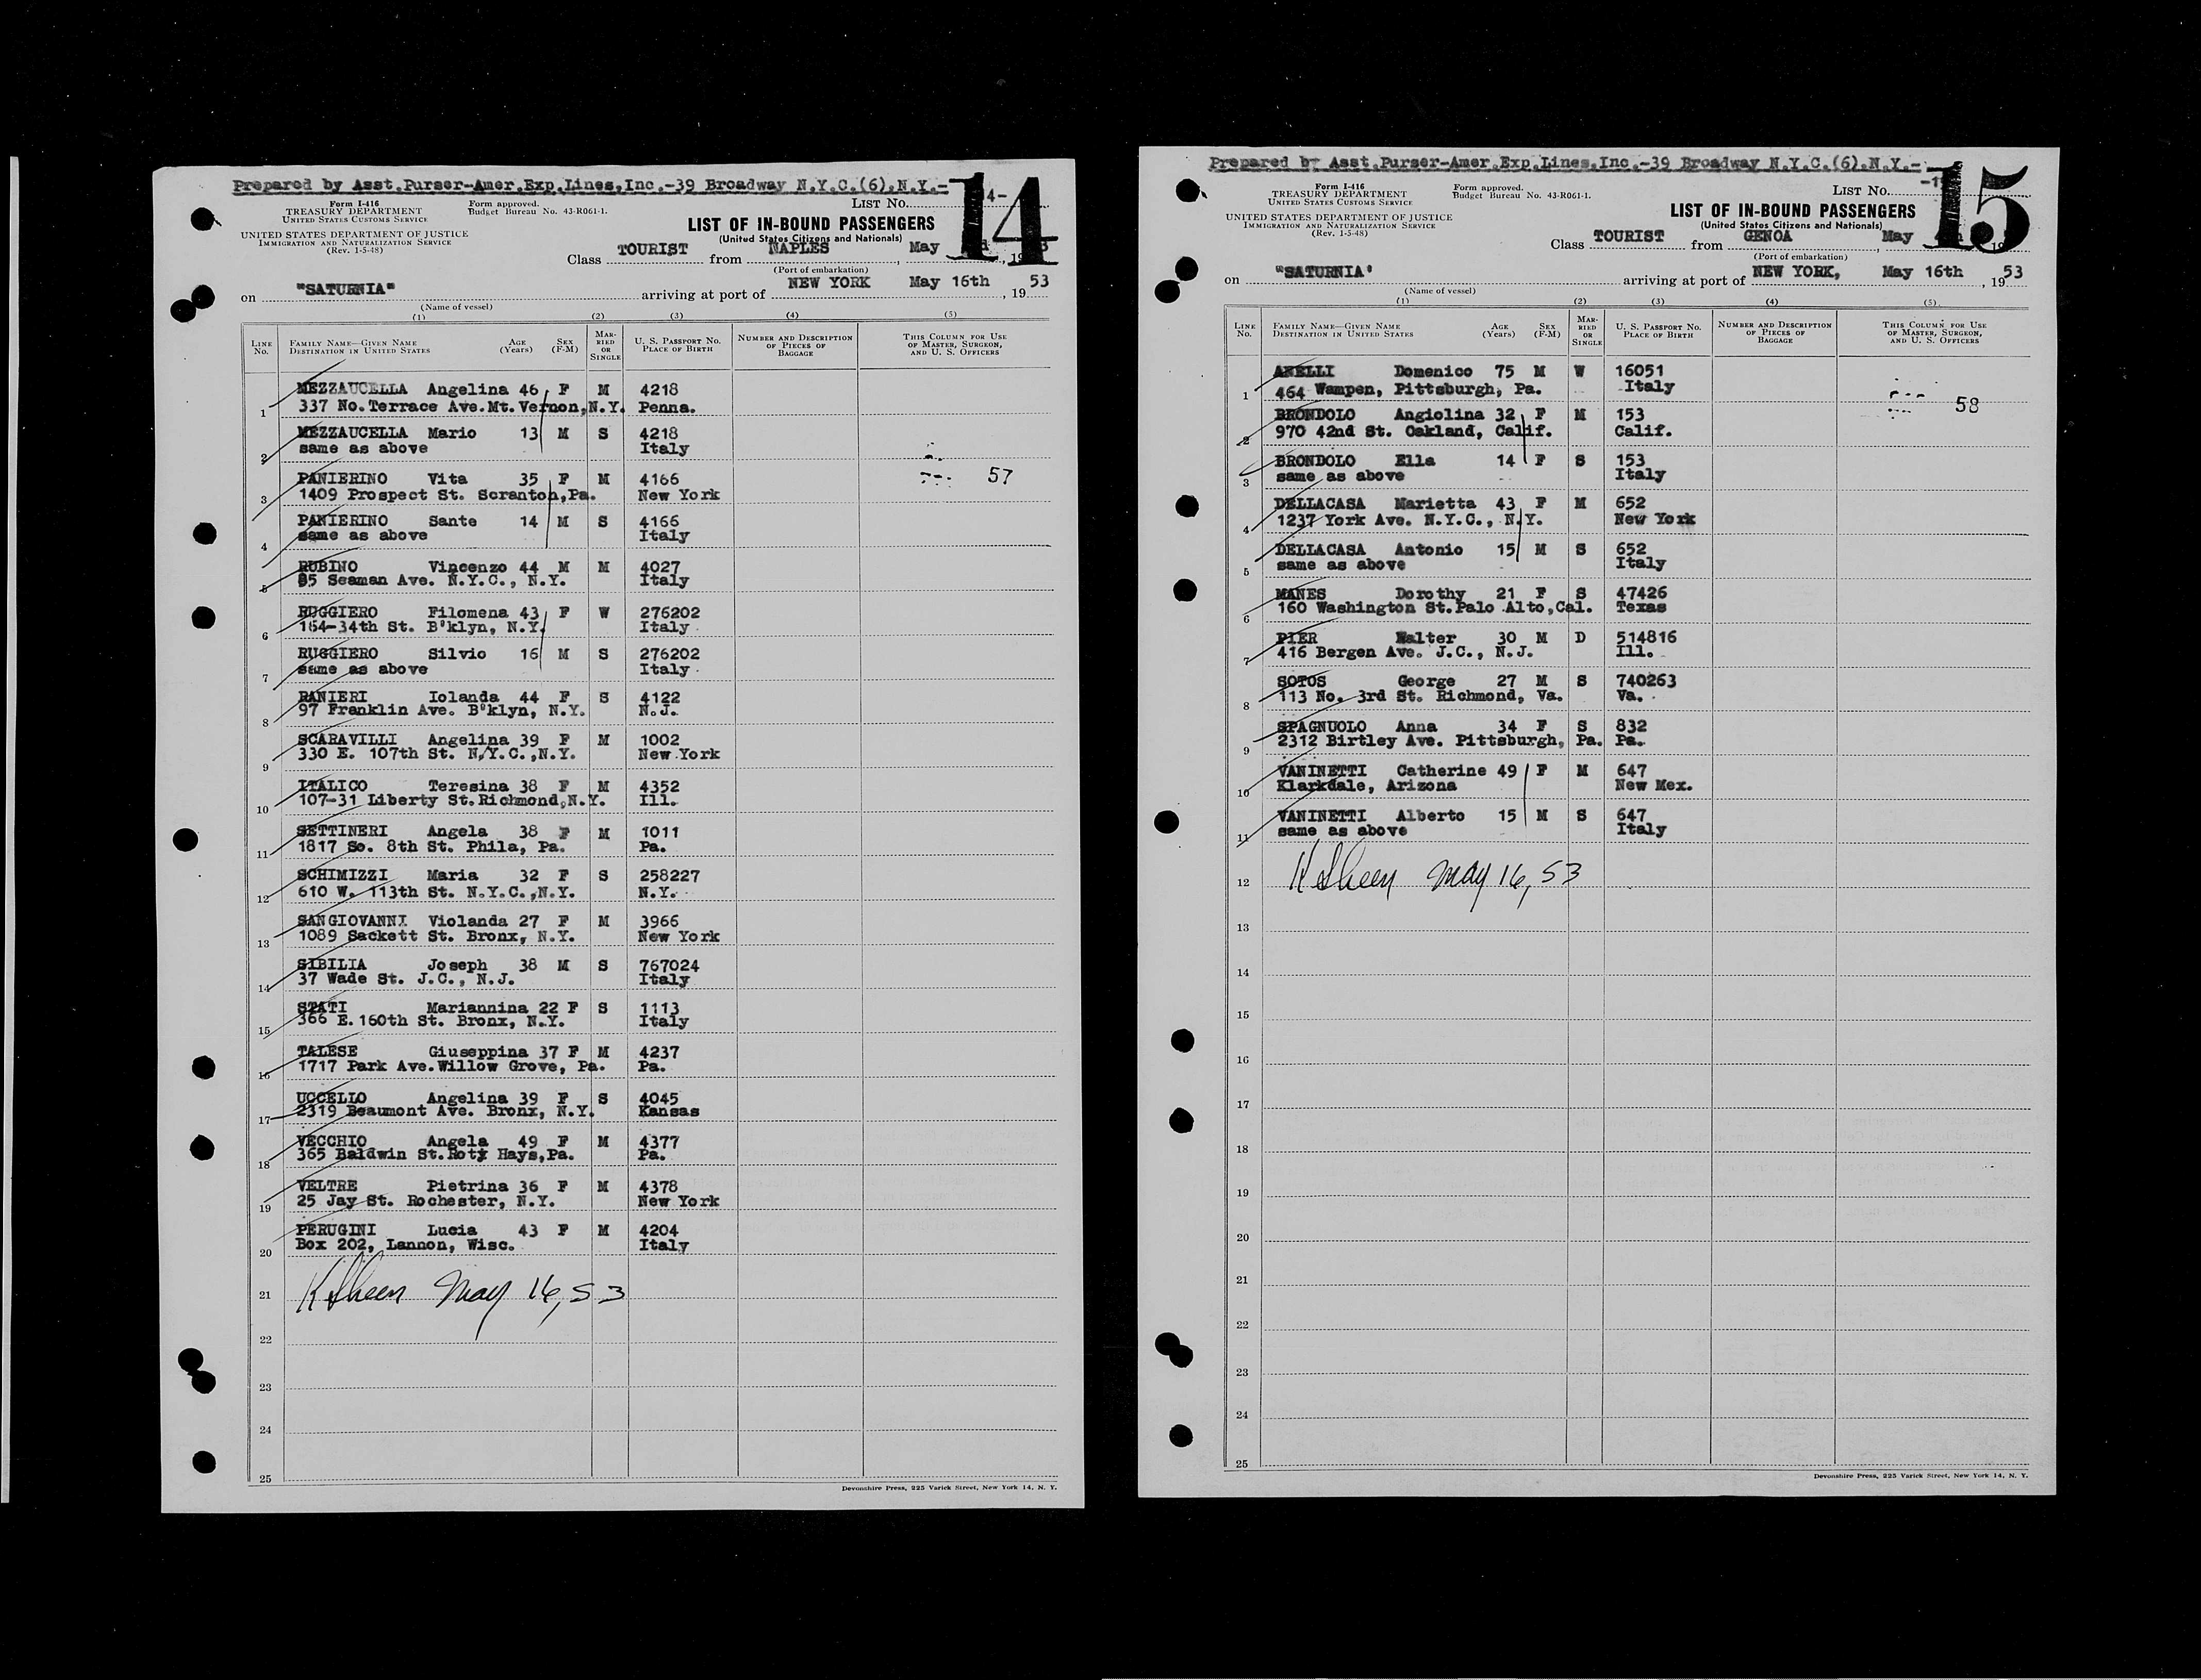 Prepared by Asst.Purser-Amer.Exp.Lines,Inc.-39 Broadway N.Y.C.(6).N.Y.-
14
Form I-416
TREASURY DEPARTMENT
UNITED STATES CUSTOMS SERVICE
Form approved.
Budget Bureau No. 43-R061-1.
LIST No. 14-
UNITED STATES DEPARTMENT OF JUSTICE
IMMIGRATION AND NATURALIZATION SERVICE
(Rev. 1-5-48)
LIST OF IN-BOUND PASSENGERS
(United States Citizens and Nationals)
Class TOURIST from NAPLES, May , 19
(Port of embarkation)
on "SATURNIA" arriving at port of NEW YORK May 16th , 19 53
(Name of vessel)
(1) (2) (3) (4) (5)
LINE No. FAMILY NAME—GIVEN NAME DESTINATION IN UNITED STATES AGE (Years) SEX (F-M) MARRIED OR SINGLE U. S. PASSPORT No. PLACE OF BIRTH NUMBER AND DESCRIPTION OF PIECES OF BAGGAGE THIS COLUMN FOR USE OF MASTER, SURGEON, AND U. S. OFFICERS
MEZZAUCELLA Angelina 46 F M 4218
1 337 No.Terrace Ave.Mt.Vernon,N.Y. Penna.
MEZZAUCELLA Mario 13 M S 4218
2 same as above Italy
PANIERINO Vita 35 F M 4166 57
3 1409 Prospect St. Scranton,Pa. New York
PANIERINO Sante 14 M S 4166
4 same as above Italy
RUBINO Vincenzo 44 M M 4027
5 85 Seaman Ave. N.Y.C., N.Y. Italy
RUGGIERO Filomena 43 F W 276202
6 164-34th St. B'klyn, N.Y. Italy
RUGGIERO Silvio 16 M S 276202
7 same as above Italy
RANIERI Iolanda 44 F S 4122
8 97 Franklin Ave. B'klyn, N.Y. N.J.
SCARAVILLI Angelina 39 F M 1002
9 330 E. 107th St. N.Y.C.,N.Y. New York
ITALICO Teresina 38 F M 4352
10 107-31 Liberty St.Richmond,N.Y. Ill.
SETTINERI Angela 38 F M 1011
11 1817 So. 8th St. Phila, Pa. Pa.
SCHIMIZZI Maria 32 F S 258227
12 610 W. 113th St. N.Y.C.,N.Y. N.Y.
SANGIOVANNI Violanda 27 F M 3966
13 1089 Sackett St. Bronx, N.Y. New York
SIBILIA Joseph 38 M S 767024
14 37 Wade St. J.C., N.J. Italy
STATI Mariannina 22 F S 1113
15 366 E.160th St. Bronx, N.Y. Italy
TALESE Giuseppina 37 F M 4237
16 1717 Park Ave.Willow Grove, Pa. Pa.
UCCELLO Angelina 39 F S 4045
17 2319 Beaumont Ave. Bronx, N.Y. Kansas
VECCHIO Angela 49 F M 4377
18 365 Baldwin St. Hays,Pa. Pa.
VELTRE Pietrina 36 F M 4378
19 25 Jay St. Rochester, N.Y. New York
PERUGINI Lucia 43 F M 4204
20 Box 202, Lannon, Wisc. Italy
21 May 16, 53
22
23
24
25
Devonshire Press, 225 Varick Street, New York 14, N. Y.
Prepared by Asst.Purser-Amer.Exp.Lines,Inc.-39 Broadway N.Y.C.(6).N.Y.-
15
Form I-416
TREASURY DEPARTMENT
UNITED STATES CUSTOMS SERVICE
Form approved.
Budget Bureau No. 43-R061-1.
LIST No.
UNITED STATES DEPARTMENT OF JUSTICE
IMMIGRATION AND NATURALIZATION SERVICE
(Rev. 1-5-48)
LIST OF IN-BOUND PASSENGERS
(United States Citizens and Nationals)
Class TOURIST from GENOA, May 19
(Port of embarkation)
on "SATURNIA" arriving at port of NEW YORK, May 16th , 19 53
(Name of vessel)
(1) (2) (3) (4) (5)
LINE No. FAMILY NAME—GIVEN NAME DESTINATION IN UNITED STATES AGE (Years) SEX (F-M) MARRIED OR SINGLE U. S. PASSPORT No. PLACE OF BIRTH NUMBER AND DESCRIPTION OF PIECES OF BAGGAGE THIS COLUMN FOR USE OF MASTER, SURGEON, AND U. S. OFFICERS
Domenico 75 M W 16051
1 464 Wampen, Pittsburgh, Pa. Italy 58
BRONDOLO Angiolina 32 F M 153
2 970 42nd St. Oakland, Calif. Calif.
BRONDOLO Ella 14 F S 153
3 same as above Italy
DELLACASA Marietta 43 F M 652
4 1237 York Ave. N.Y.C., N.Y. New York
DELLACASA Antonio 15 M S 652
5 same as above Italy
MANES Dorothy 21 F S 47426
6 160 Washington St.Palo Alto,Cal. Texas
PIER Walter 30 M D 514816
7 416 Bergen Ave. J.C., N.J. Ill.
SOTOS George 27 M S 740263
8 113 No. 3rd St. Richmond, Va. Va.
SPAGNUOLO Anna 34 F S 832
9 2312 Birtley Ave. Pittsburgh, Pa. Pa.
VANINETTI Catherine 49 F M 647
10 Klarkdale, Arizona New Mex.
VANINETTI Alberto 15 M S 647
11 same as above Italy
12 May 16, 53
13
14
15
16
17
18
19
20
21
22
23
24
25
Devonshire Press, 225 Varick Street, New York 14, N. Y.